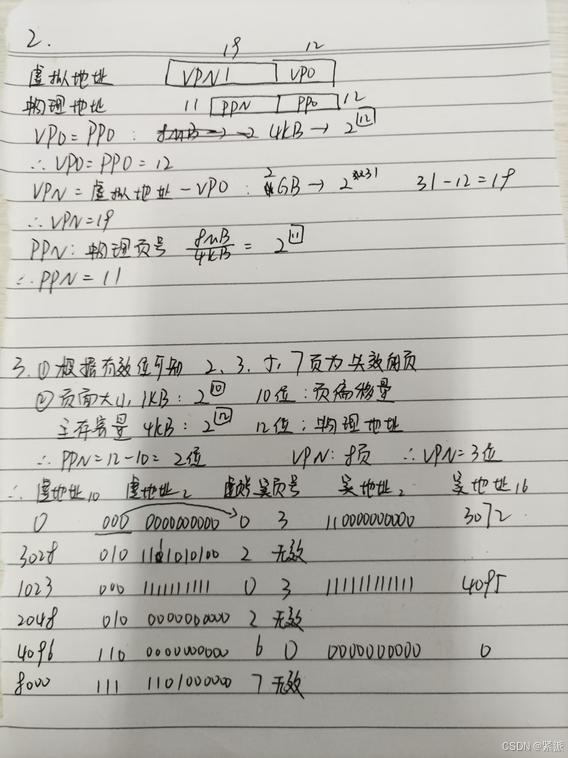 2.
19 12
虚拟地址 VPN1 VPO
物理地址 11 PPN PPO 12
VPO=PPO: 4kB → 2^12
∴ VPO=PPO=12
VPN=虚拟地址-VPO: 2GB → 2^31 31-12=19
∴ VPN=19
PPN: 物理页号 8MB/4kB = 2^11
∴ PPN=11
3. ① 根据有效位可知 2、3、5、7页为失效的页
② 页面大小 1kB: 2^10 10位: 页偏移量
主存容量 4kB: 2^12 12位: 物理地址
∴ PPN=12-10=2位 VPN: 8页 ∴ VPN=3位
∴ 虚地址10 虚地址2 虚页号 实页号 实地址2 实地址16
0 000 0000000000 0 3 110000000000 3072
3028 010 1111010100 2 无效
1023 000 1111111111 0 3 111111111111 4095
2048 010 0000000000 2 无效
4096 110 0000000000 6 0 0000000000 0
8000 111 1101000000 7 无效
CSDN @紧派